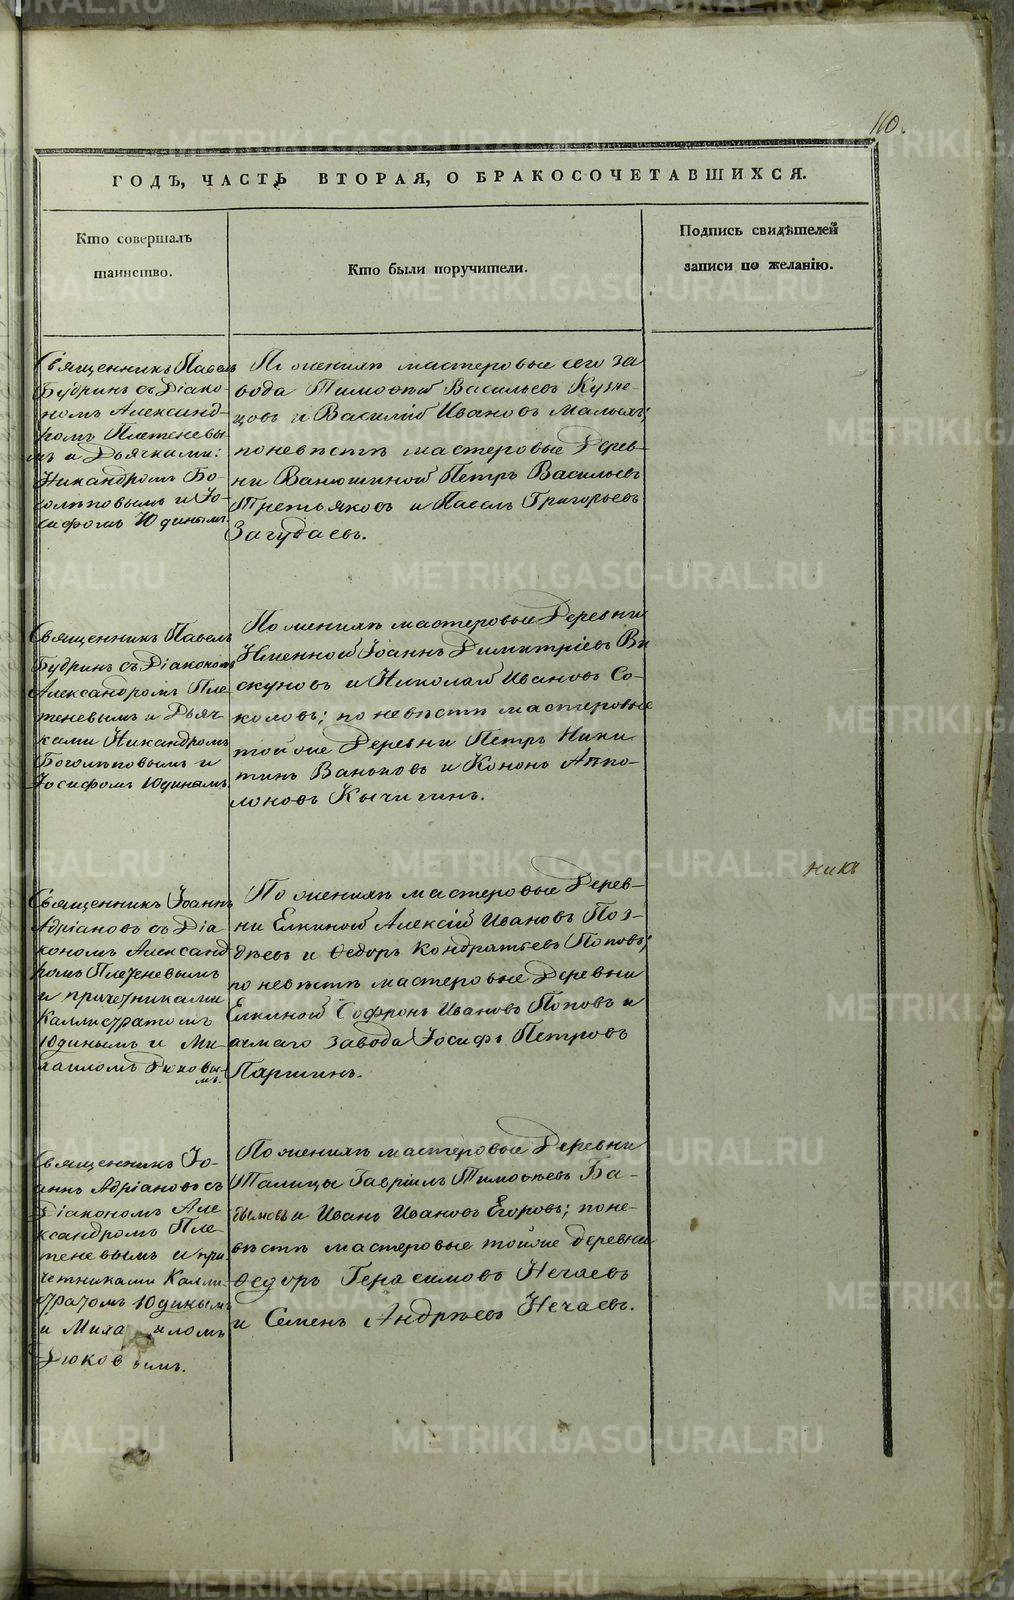 110.
ГОДЪ, ЧАСТЬ ВТОРАЯ, О БРАКОСОЧЕТАВШИХСЯ.
Кто совершалъ
таинство.
Кто были поручители.
Подпись свидѣтелей
записи по желанію.
Священникъ Павелъ
Будринъ съ Діако-
номъ Александ-
ромъ Плетеневы-
мъ и Дьячками:
Никандромъ Бо-
голѣповымъ и Іо-
сифомъ Юдинымъ.
По женихѣ мастеровые сего за
вода Тимофей Васильевъ Кузне-
цовъ и Василій Ивановъ
по невѣстѣ мастеровые Дерев-
ни Ванюшиной Петръ Васильевъ
Третьяковъ и Павелъ Григорьевъ
Загудаевъ.
Священникъ Павелъ
Будринъ съ Діакономъ
Александромъ Пле
теневымъ и Дьяч
ками Никандромъ
Боголѣповымъ и
Іосифомъ Юдинымъ.
По женихѣ мастеровые Деревни
Іоаннъ Димитріевъ Пи
скуновъ и Николай Ивановъ Со-
коловъ; по невѣстѣ мастеровые
той же Деревни Петръ Ники
тинъ Ваньковъ и Кононъ Аппо-
лоновъ Кычигинъ.
Священникъ Іоаннъ
Адріановъ съ Діа-
кономъ Александ
ромъ Плетеневымъ
и причетниками
Каллистратомъ
Юдинымъ и Ми-
хаиломъ Дюковы-
мъ.
По женихѣ мастеровые Дерев-
ни Елкиной Алексій Ивановъ Поз-
дѣевъ и Ѳедоръ Кондратьевъ Поповъ;
по невѣстѣ мастеровые Деревни
Елкиной Софронъ Ивановъ Поповъ и
завода Іосифъ Петровъ
Паршинъ.
никъ
Священникъ Іо-
аннъ Адріановъ съ
Діакономъ Але-
ксандромъ Пле-
теневымъ и при-
четниками Калли-
стратомъ Юдинымъ
и Михаиломъ
Дюковымъ.
По женихѣ мастеровые Деревни
Талицы Гавріилъ Тимоѳеевъ Ба-
и Иванъ Ивановъ Егоровъ; по не-
вѣстѣ мастеровые той же деревни
Ѳедоръ Герасимовъ Нечаевъ
и Семенъ Андреевъ Нечаевъ.
METRIKI.GASO-URAL.RU